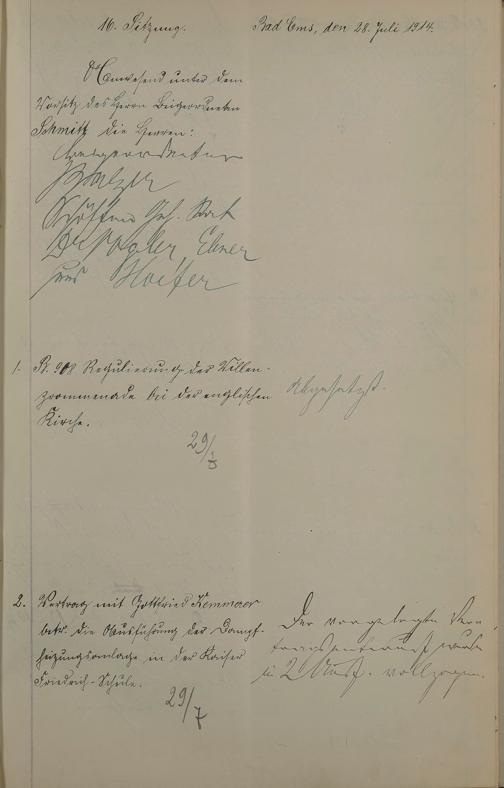 16. Sitzung.
Bad Ems, den 28. Juli 1914.
Anwesend unter dem
Vorsitz des Herrn Beigeordneten
Schmitt die Herren:
Beigeordneter
Balzer
Schöffen Geh. Rat
Dr. Vogler, Ebner
und Hoefer
1. B. 908 Regulierung der Villen-
promenade bei der englischen
Kirche.
Abgesetzt.
29/
2. Vertrag mit Gottfried Kemmaer
betr. die Ausführung der Dampf-
heizungsanlage in der Kaiser
Friedrich-Schule.
29/7
Der vorgelegte Ver-
tragsentwurf wurde
in 2 Ausf. vollzogen.